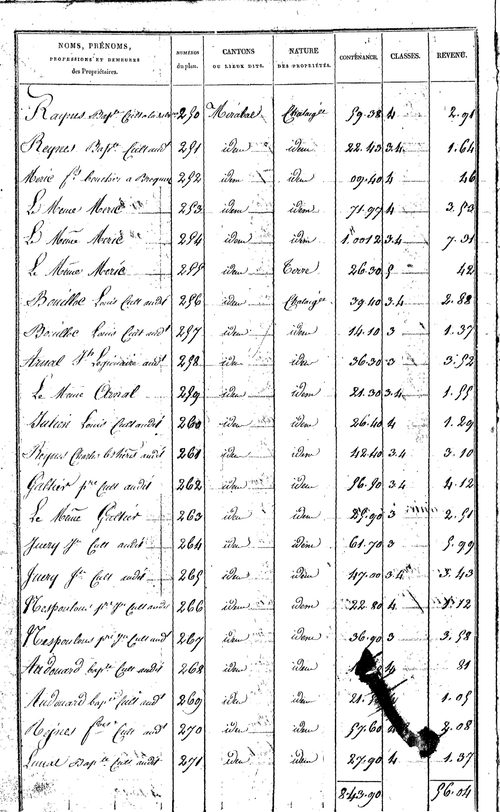 NOMS, PRÉNOMS, PROFESSIONS ET DEMEURES des Propriétaires. NUMÉROS du plan. CANTONS OU LIEUX DITS. NATURE DES PROPRIÉTÉS. CONTENANCE. CLASSES. REVENU.
250 59.38 4 2.91
Reynes Bap.te Cult audt 251 idem idem 22.43 3.4 1.64
252 idem idem 09.40 4 46
Le Meme Moric 253 idem idem 71.97 4 3.53
Le Même Moric 254 idem idem 1.0012 3.4 7.31
Le Même Moric 255 idem Terre 26.30 5 42
Bouilloc Louis Cult audt 256 idem 39.40 3.4 2.88
Bouilloc Louis Cult audt 257 idem idem 14.10 3 1.37
Arnal audt 258 idem idem 36.30 3 3.52
Le Meme Arnal 259 idem idem 21.30 3.4 1.55
Julien Louis Cult audit 260 idem idem 26.40 4 1.29
Charles audit 261 idem idem 42.40 3.4 3.10
Galtier Cult audit 262 idem idem 56.50 3.4 4.12
Le Même Galtier 263 idem idem 25.90 3 2.51
Juery Jn Cult audit 264 idem idem 61.70 3 5.99
Juery Jn Cult audit 265 idem idem 47.00 3.4 3.43
Nespoulous Cult audt 266 idem idem 22.80 4 1.12
Nespoulous Cult audt 267 idem idem 36.90 3 3.58
Audouard bapte Cult audit 268 idem idem 4 81
Audouard bapte Cult audt 269 idem idem 21. 4 1.05
Cult audt 270 idem idem 57.60 2.08
Bapte Cult audit 271 idem idem 27.90 4 1.37
8.43.90 56.04